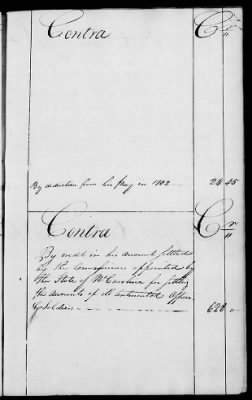 Contra Cr
By deduction from his Pay in 1782 24 45
Contra Cr
By credit in his account settled
by the Commissioners appointed by
the State of No Carolina for settling
the accounts of its Continental Officers
& Soldiers 628